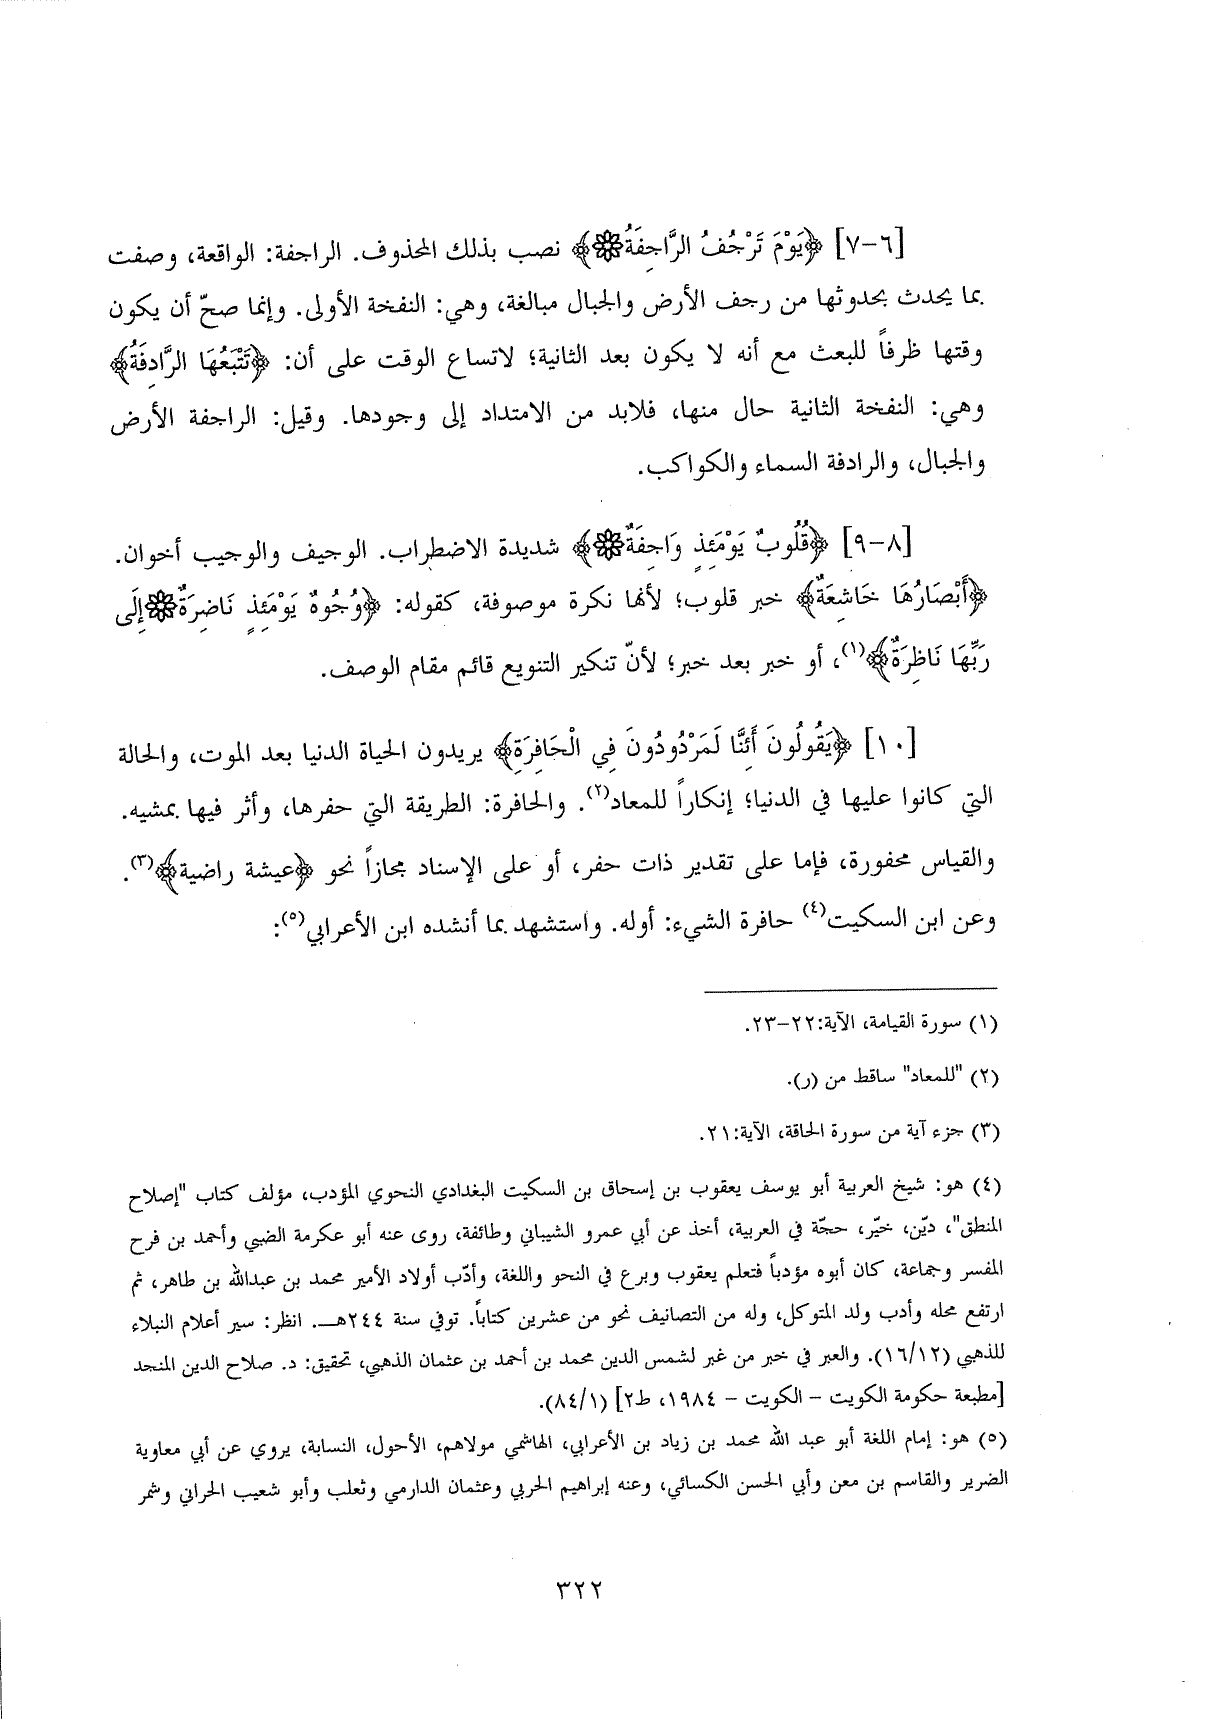 [٦-٧] ﴿يَوْمَ تَرْجُفُ الرَّاجِفَةُ۞﴾ نصب بذلك المحذوف. الراجفة: الواقعة، وصفت
بما يحدث بحدوثها من رجف الأرض والجبال مبالغة، وهي: النفخة الأولى. وإنما صحّ أن يكون
وقتها ظرفاً للبعث مع أنه لا يكون بعد الثانية؛ لاتساع الوقت على أن: ﴿تَتْبَعُهَا الرَّادِفَةُ﴾
وهي: النفخة الثانية حال منها، فلابد من الامتداد إلى وجودها. وقيل: الراجفة الأرض
والجبال، والرادفة السماء والكواكب.
[٨-٩] ﴿قُلُوبٌ يَوْمَئِذٍ وَاجِفَةٌ۞﴾ شديدة الاضطراب. الوجيف والوجيب أخوان.
﴿أَبْصَارُهَا خَاشِعَةٌ﴾ خبر قلوب؛ لأنها نكرة موصوفة، كقوله: ﴿وُجُوهٌ يَوْمَئِذٍ نَاضِرَةٌ۞إِلَى
رَبِّهَا نَاظِرَةٌ﴾(١)، أو خبر بعد خبر؛ لأنّ تنكير التنويع قائم مقام الوصف.
[١٠] ﴿يَقُولُونَ أَئِنَّا لَمَرْدُودُونَ فِي الْحَافِرَةِ﴾ يريدون الحياة الدنيا بعد الموت، والحالة
التي كانوا عليها في الدنيا؛ إنكاراً للمعاد(٢). والحافرة: الطريقة التي حفرها، وأثر فيها بمشيه.
والقياس محفورة، فإما على تقدير ذات حفر، أو على الإسناد مجازاً نحو ﴿عيشة راضية﴾(٣).
وعن ابن السكيت(٤) حافرة الشيء: أوله. واستشهد بما أنشده ابن الأعرابي(٥):
(١) سورة القيامة، الآية:٢٢-٢٣.
(٢) "للمعاد" ساقط من (ر).
(٣) جزء آية من سورة الحاقة، الآية:٢١.
(٤) هو: شيخ العربية أبو يوسف يعقوب بن إسحاق بن السكيت البغدادي النحوي المؤدب، مؤلف كتاب "إصلاح
المنطق"، ديّن، خيّر، حجّة في العربية، أخذ عن أبي عمرو الشيباني وطائفة، روى عنه أبو عكرمة الضبي وأحمد بن فرح
المفسر وجماعة، كان أبوه مؤدباً فتعلم يعقوب وبرع في النحو واللغة، وأدّب أولاد الأمير محمد بن عبدالله بن طاهر، ثم
ارتفع محله وأدب ولد المتوكل، وله من التصانيف نحو من عشرين كتاباً. توفي سنة ٢٤٤هـ. انظر: سير أعلام النبلاء
للذهبي (١٦/١٢). والعبر في خبر من غبر لشمس الدين محمد بن أحمد بن عثمان الذهبي، تحقيق: د. صلاح الدين المنجد
[مطبعة حكومة الكويت - الكويت - ١٩٨٤، ط٢] (٨٤/١).
(٥) هو: إمام اللغة أبو عبد الله محمد بن زياد بن الأعرابي، الهاشمي مولاهم، الأحول، النسابة، يروي عن أبي معاوية
الضرير والقاسم بن معن وأبي الحسن الكسائي، وعنه إبراهيم الحربي وعثمان الدارمي وثعلب وأبو شعيب الحراني وشمر
٣٢٢